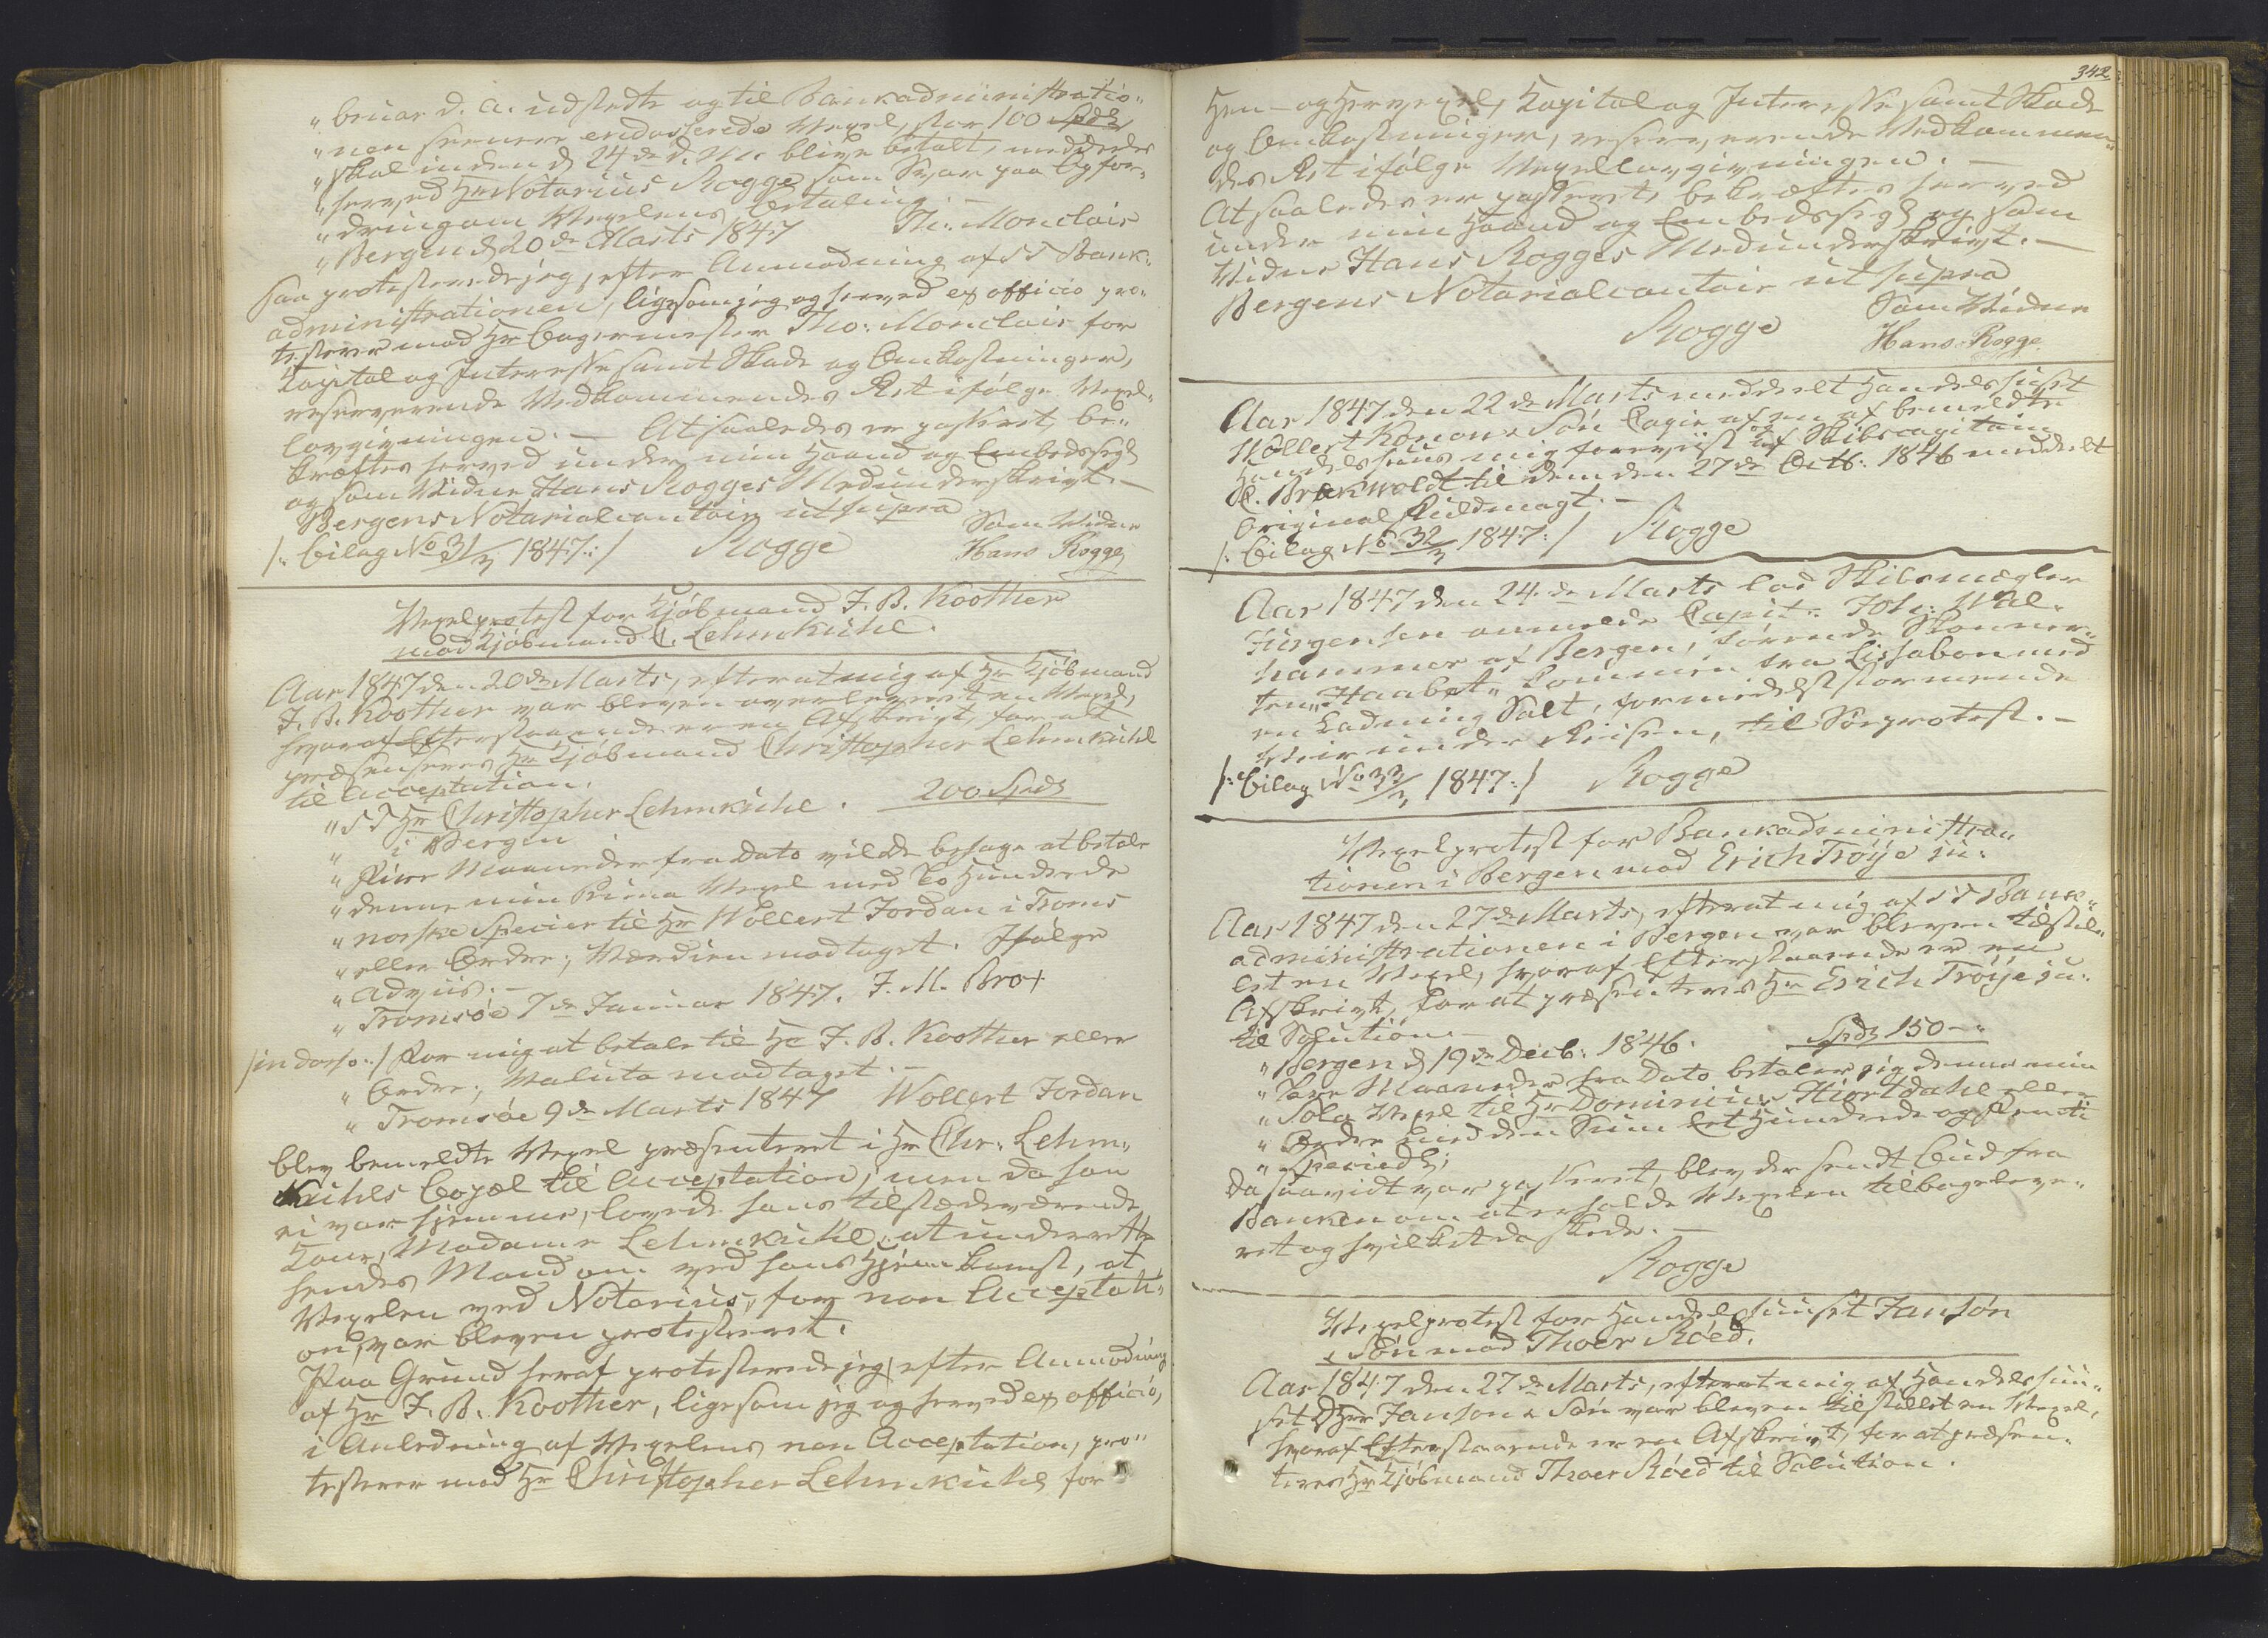 "bruar d. A. udstedte og til Bankadministratio-
"nen senere endosserede Vexel, stor 100 Spdl
"skal inden d 24de d. M. blive betalt, meddeeles
"herved Hr Notarius Rogge som Svar paa Opfor-
"dring om Vexelens Betaling. —
"Bergen d 20de Marts 1847 Th: Monclair
saa protesterede jeg, efter Anmodning af ST Bank-
administrationen, ligesom jeg og herved ex officio pro-
testerer mod Hr Bagermester Tho: Monclair for
Kapital og Interesse samt Skade og Omkostninger,
reserverende Vedkommendes Ret ifølge Vexel-
lovgivningen. — At saaledes er passeret, be-
kræftes herved under min Haand og Embedssegl
og som Vidne Hans Rogges Medunderskrivt. —
Bergens Notarialcontoir ut supra
Som Vidne
/: Bilag No 31/3 1847 :/ Rogge Hans Rogge
Vexelprotest for Kjöbmand J. B. Koothen
mod Kjöbmand C. Lehmkuhl.
Aar 1847 den 20de Marts, efterat mig af Hr Kjöbmand
J. B. Koother var bleven overleveret en Vexel,
hvoraf Efterstaaende er en Afskrivt, for at
præsenteres Hr Kjöbmand Christopher Lehmkuhl
til Acceptation.
"ST Hr Christopher Lehmkuhl. 200 Spdl
" i Bergen
"Fire Maaneder fra Dato vilde behage at betale
"denne min Prima Vexel med To Hundrede
"norske Species til Hr Wollert Jordan i Troms
"eller Ordre; Værdien modtaget. Ifølge
"Adviis. —
"Tromsöe 7de Januar 1847. J. M. Brox
/in dorso:/ For mig at betale til Hr J. B. Koother eller
"Ordre; Valuta modtaget. —
"Tromsöe 9de Marts 1847 Wollert Jordan
blev bemeldte Vexel præsenteret i Hr Chr: Lehm-
kuhls Bopæl til Acceptation; men da han
ei var hjemme, lovede hans tilstædeværende
Kone, Madame Lehmkuhl, at underrette
hendes Mand om ved hans Hjemkomst, at
Vexelen ved Notarius, for non Acceptati-
on, var bleven protesteret.
Paa Grund heraf protesterede jeg, efter Anmodning
af Hr J. B. Koother, ligesom jeg og herved ex officio,
i Anledning af Vexelens non Acceptation, pro-
testerer mod Hr Christopher Lehmkuhl for
342
Hen- og Hervexel, Kapital og Interesse samt Skade
og Omkostninger, reserverende Vedkommen-
des Ret ifølge Vexellovgivningen. —
At saaledes er passeret, bekræftes herved
under min Haand og Embedssegl og som
Vidne Hans Rogges Medunderskrivt. —
Bergens Notarialcontoir ut supra
Som Vidne
Rogge Hans Rogge
Aar 1847 den 22de Marts meddeelt Handelshuset
Wollert Konow & Søn Copie af en af bemeldte
Handelshuus mig foreviist og af Skibscapitain
C. Brackwoldt til dem den 27de Octb: 1846 meddeelt
Original Fuldmagt. —
/: Bilag No 32/3 1847:/ Rogge
Aar 1847 den 24de Marts lod Skibsmægler
Jürgensen anmelde Capit: Joh: Wal-
hammer af Bergen, førende Skonner-
ten "Haabet" kommen fra Lissabon med
en Ladning Salt, formedelst stormende
Veir under Reisen, til Søeprotest. —
/: Bilag No 33/3 1847:/ Rogge
Vexelprotest for Bankadministra-
tionen i Bergen mod Erich Tröye ju:
Aar 1847 den 27de Marts, efterat mig af ST Bank-
administrationen i Bergen var bleven tilstil-
let en Vexel, hvoraf Efterstaaende er en
Afskrivt, for at præsenteres Hr Erich Tröye ju:
til Solution. —
"Bergen d 19de Decb: 1846. Spdl 150—"
"Tre Maaneder fra Dato betaler jeg denne min
"Sola Vexel til Hr Dominicus Hiortdahl eller
"Ordre med den Sum Eet Hundrede og Femti
"Speciedl;
Da saavidt var passeret, blev der sendt Bud fra
Banken om at erholde Vexelen tilbageleve-
ret og hvilket da skede. —
Rogge
Vexelprotest for Handelshuuset Janson
& Søn mod Thoer Röed.
Aar 1847 den 27de Marts, efterat mig af Handelshuu-
set DHrr Janson & Søn var bleven tilstillet en Vexel,
hvoraf Efterstaaende er en Afskrivt, for at præsen-
teres Hr Kjöbmand Thoer Röed til Solution.